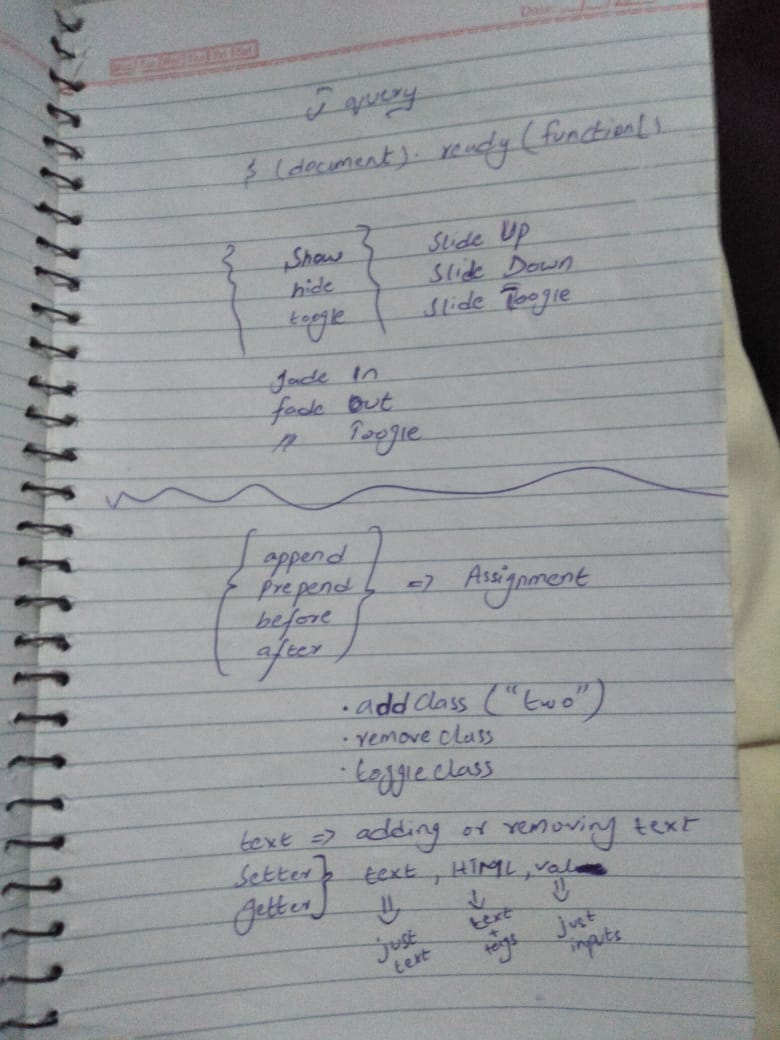 Date
J query
$ (document). ready (function()
Show
hide
toogle
Slide Up
Slide Down
Slide Toogle
fade In
fade Out
" Toogle
append
prepend
before
after
=> Assignment
. addClass ("two")
. remove class
. toggle class
text => adding or removing text
Setter
getter
text , HTML , val
just text
text + tags
just inputs